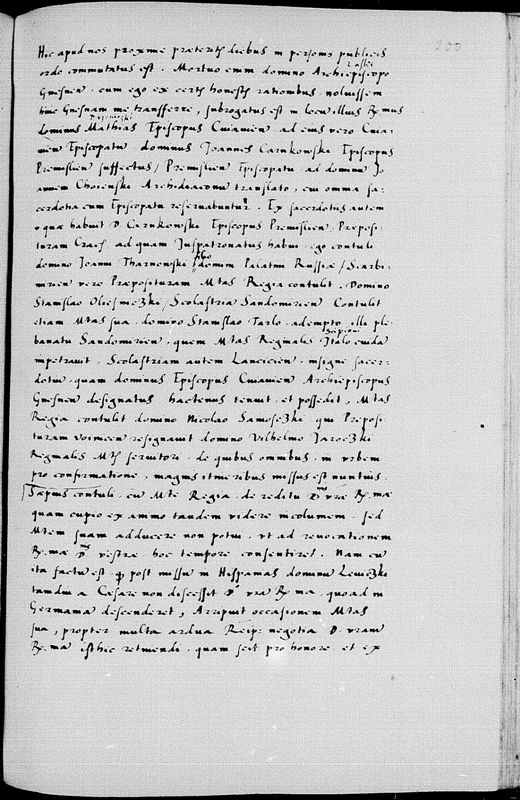 200
Hic apud nos proxime præteritis diebus in personis publicis
ordo commutatus est. Mortuo enim domino Archiepiscopo
Laski
Gnesnen. cum ego ex certis honestis rationibus noluissem
hinc Gnesnam me transferre, subrogatus est in locum illius Rmus
dominus Mathias Episcopus Cuiavien ad eius vero Cuia=
vien Episcopatu dominus Joannes Carnkowski Episcopus
Premislien suffectus / Premislien Episcopatu ad dominu Jo
annem Choienski Archidiaconu translato, cui omnia sa=
cerdotia cum Episcopatu reseruabuntur. Ex sacerdotiis autem
quæ habuit D. Carnkowski Episcopus Premislien, Prepos=
turam Crac, ad quam Juspatronatus habui ego contuli
domino Joanni Tharnowski filio domini Palatini Russiæ / Scarbi=
mirien vero Præposituram Mtas Regia contulit. Domino
Stanislao Oliesniczki / Scolastria Sandomirien Contulit
etiam Mtas sua domino Stanislao Tarlo adempto illi ple=
banatu Sandomirien. quem Mtas Reginalis Italo cuida
Scipioni
impetrauit. Scolastriam autem Lancicien. insigne sacer=
dotiu quam dominus Episcopus Cuiavien Archiepiscopus
Gnesnen designatus hactenus tenuit et possedit, Mtas
Regia contulit domino Nicolao Samoseczki qui Preposi=
turam resignauit domino Vilhelmo Jaroczki
Reginalis Mtis seruitori. de quibus omnibus in vrbem
pro confirmatione. magnis itineribus missus est nuntius.
Sæpius contuli cu Mte Regia de reditu D. vræ Rmæ
quam cupio ex animo tandem videre incolumem. sed
Mtem suam adducere non potui vt ad reuocationem
Rmæ D. vestræ hoc tempore consentiret. Nam cu
ita factu est qd post missu in Hispanias dominu
tandiu a Cesare non discessit D. vra Rma quoad in
Germania descenderet, Arripuit occasionem Mtas
sua, propter multa ardua Reip: negotia D. vram
Rma isthic retinendi quam scit pro honore et ex